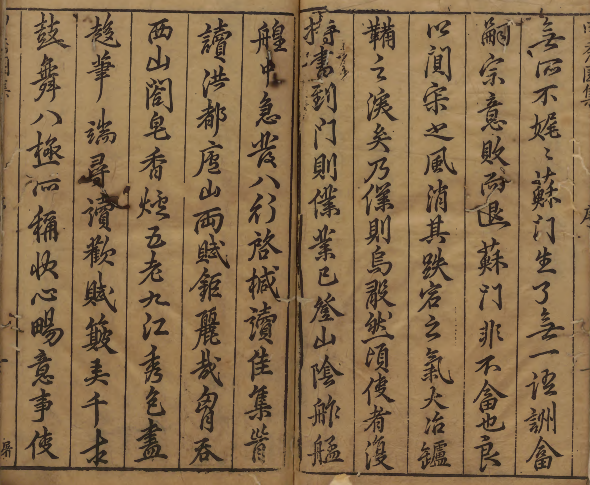 無所不娓娓蘇门生了無一語詶畣
嗣宗意敗而退蘇門非不畣也良
以閴宗之風消其跌宕之氣大冶鑪
鞴之淚矣乃僕則烏敢然頃使者復
持書到门則僕業已登山陰舴艋
艎中急發八行啓椷讀佳集皆
讀洪都廬山兩賦鉅麗哉胷吞
西山閤皂香爐五老九江秀色盡
趍筆端尋讀歡賦簸弄千古
鼓舞八極所稱快心暢意事使